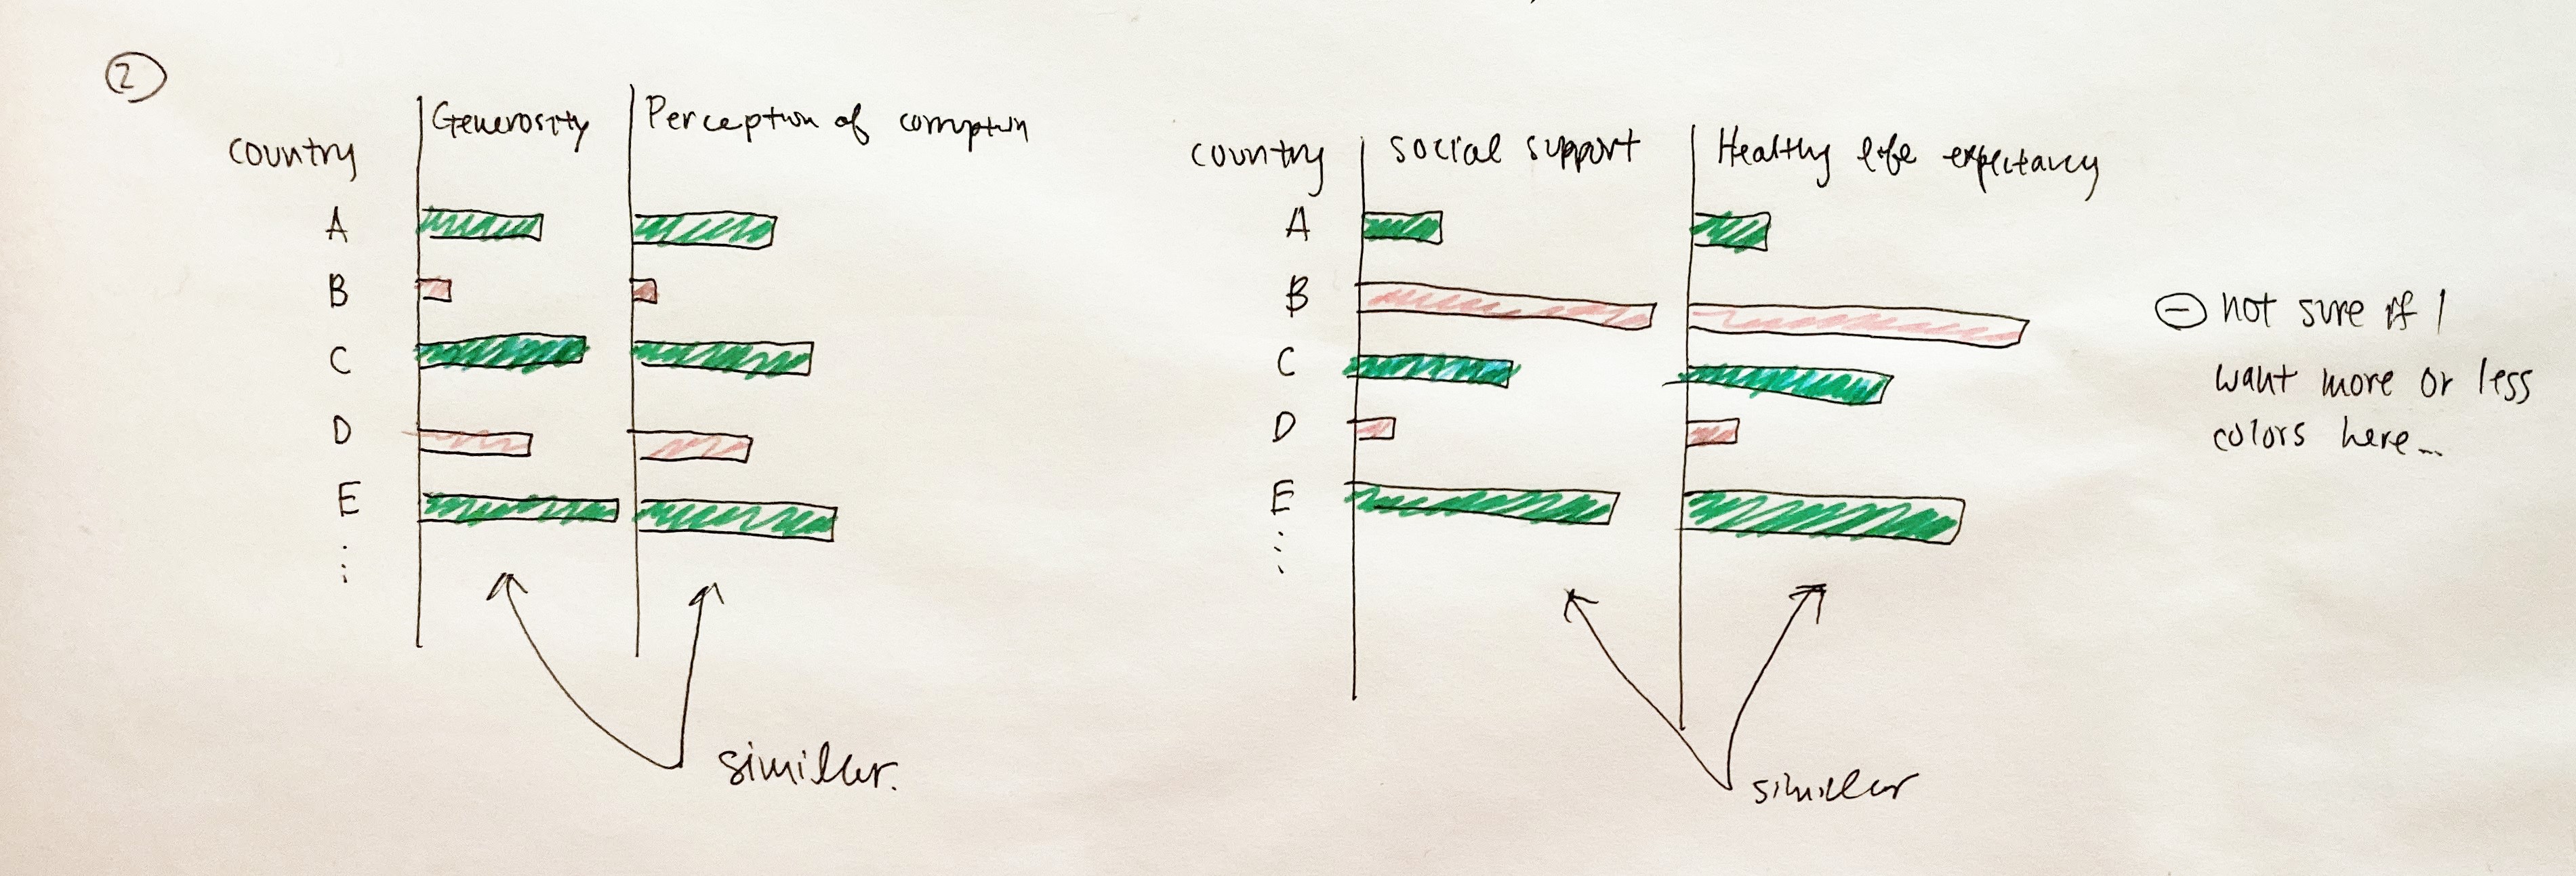 2
country Generosity Perception of corruption
A
B
C
D
E
similar.
country social support Healthy life expectancy
A
B
C
D
E
similar
not sure if I
want more or less
colors here...